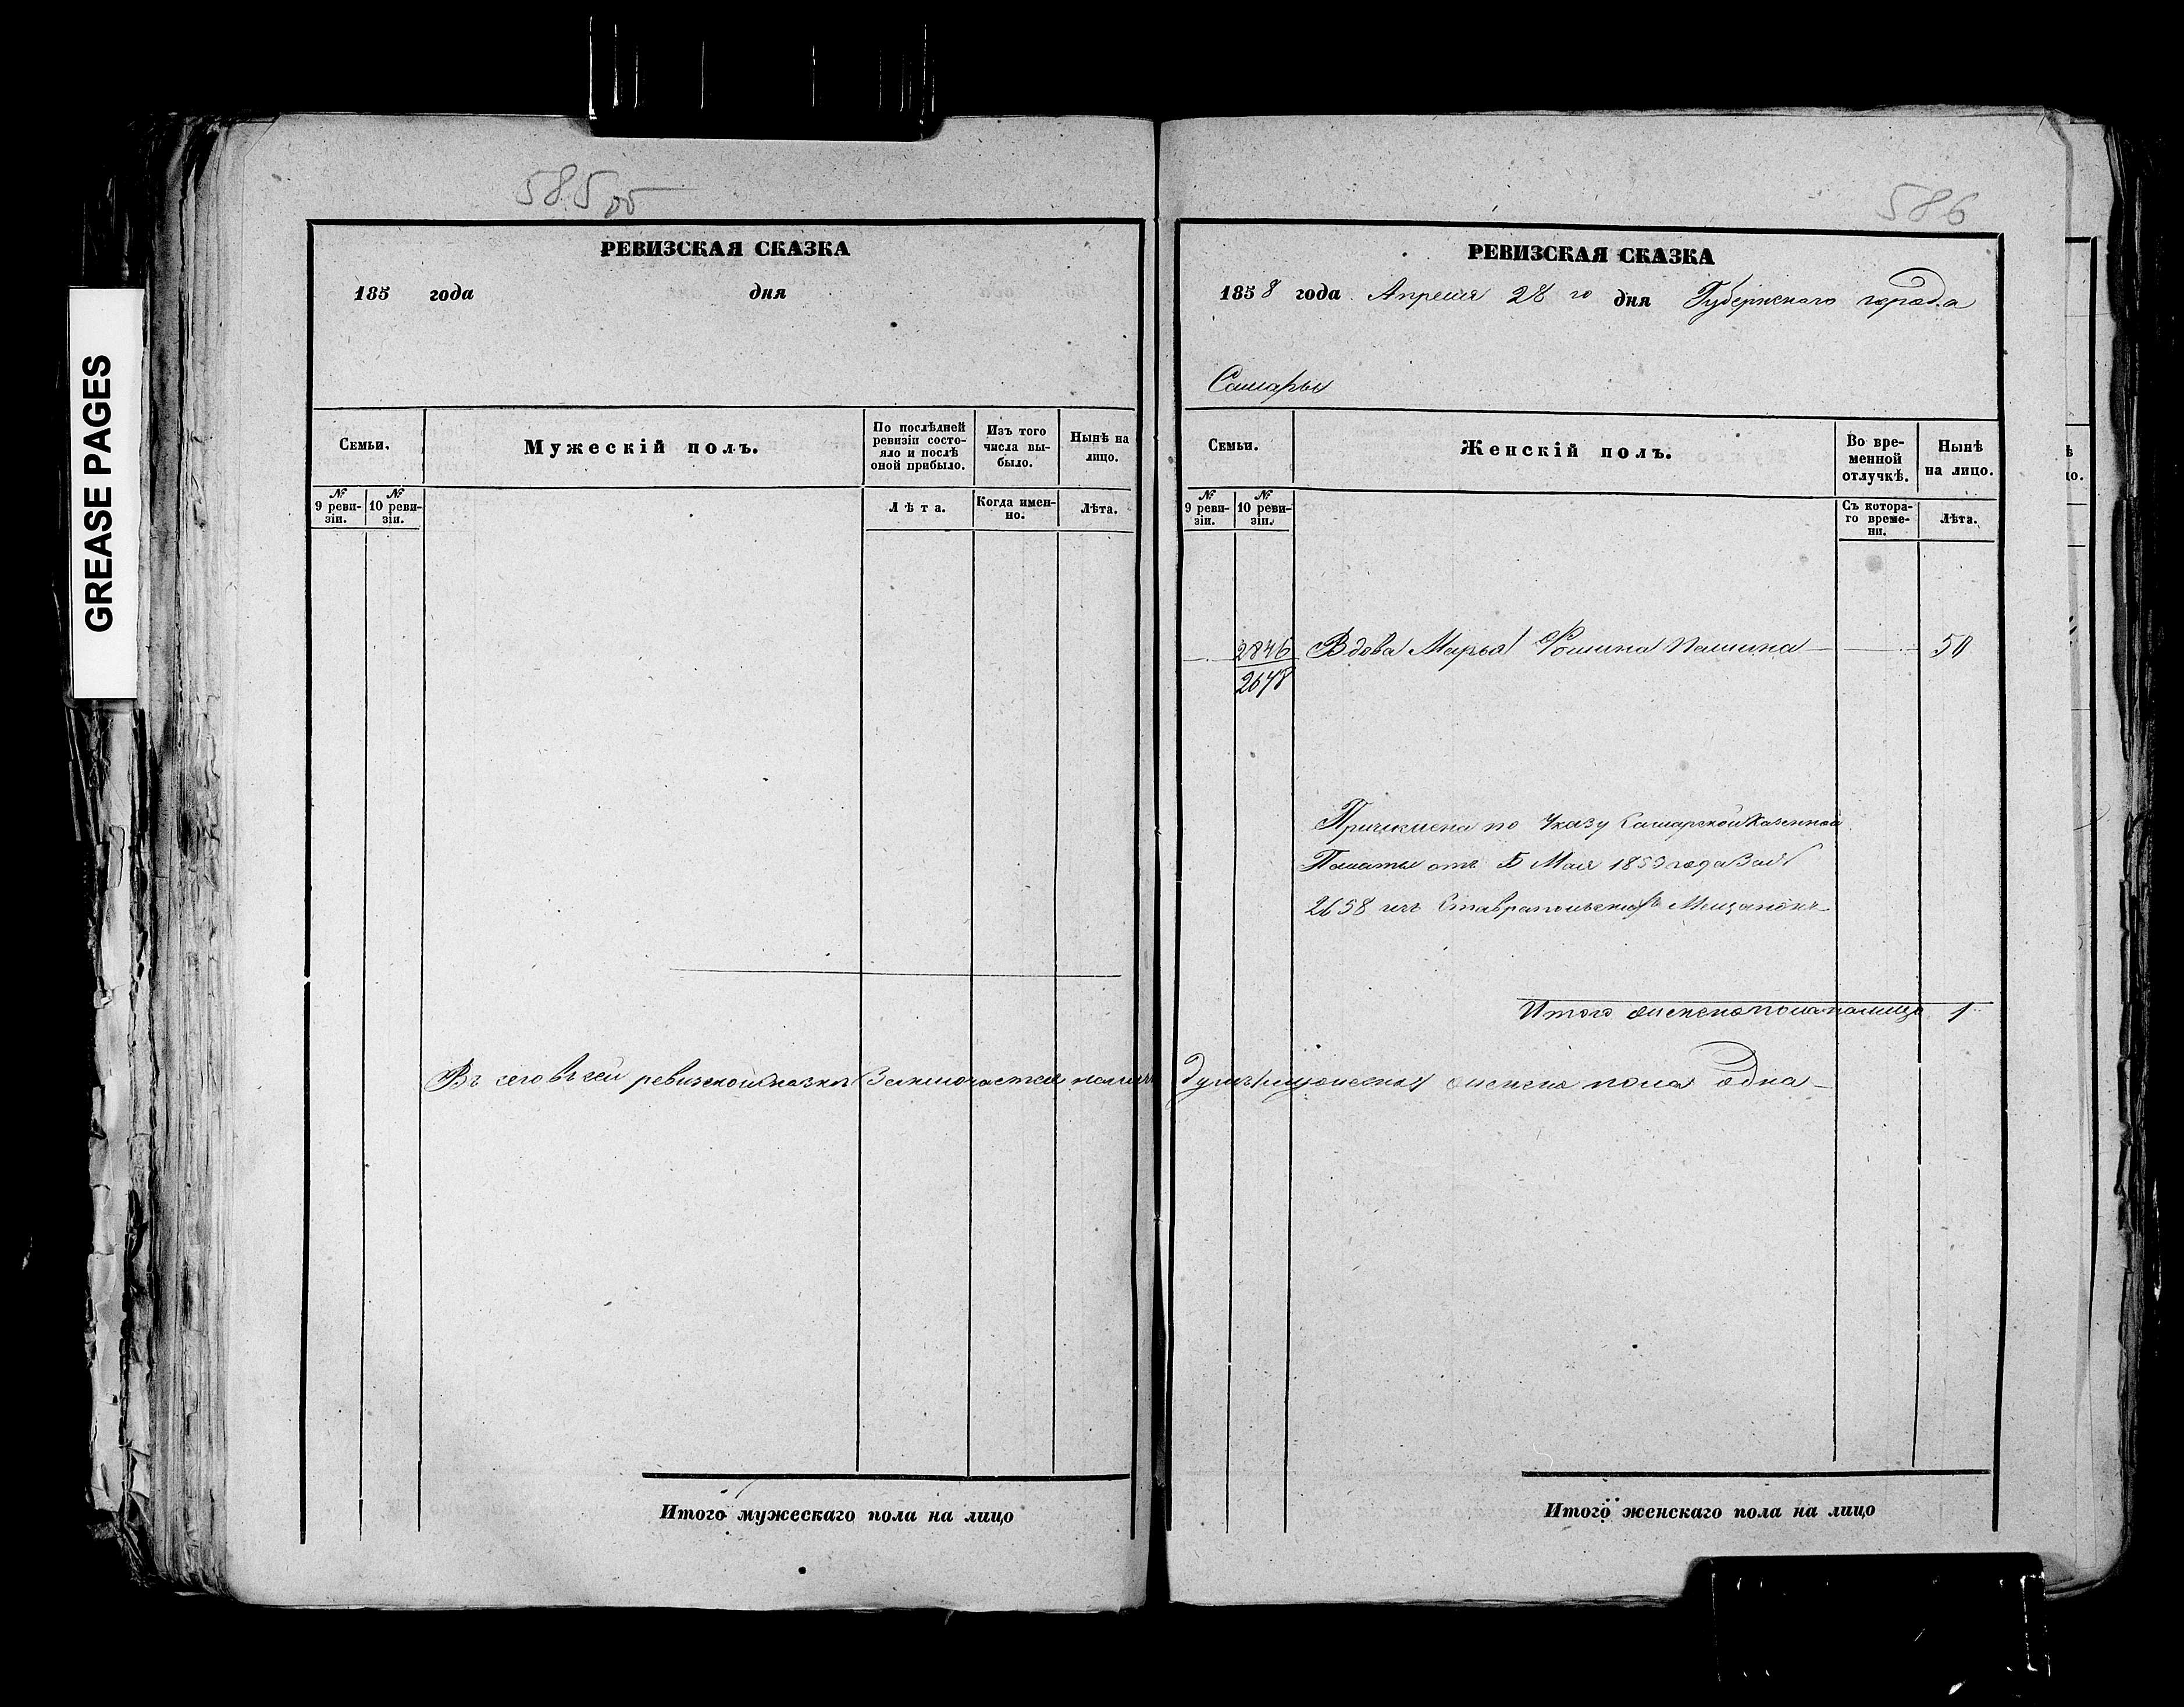 GREASE PAGES
585 об
РЕВИЗСКАЯ СКАЗКА
185 года дня
Семьи.
Мужескій полъ.
По послѣдней ревизіи состо-
яло и послѣ
оной прибыло.
Изъ того
числа вы-
было.
Нынѣ на
лицо.
№ 9 реви-
зіи.
№ 10 реви-
зіи.
Лѣта.
Когда имен-
но.
Лѣта.
Въ сей ревизской сказкѣ Заключается налицо
Итого мужескаго пола на лицо
586
РЕВИЗСКАЯ СКАЗКА
1858 года Апреля 28 го дня Губернскаго города
Самары
Семьи.
Женскій полъ.
Во вре-
менной
отлучкѣ.
Нынѣ
на лицо.
№ 9 реви-
зіи.
№ 10 реви-
зіи.
Съ котора-
го време-
ни.
Лѣта.
2846 Вдова Марья Фомина 50
2648
Причислена по Указу Самарской Казенной
Палаты отъ 5 Мая 1853 года За №
2658 изъ Ставропольскихъ Мещанокъ
Итого женска пола налицо 1
душъ женска пола одна
Итого женскаго пола на лицо